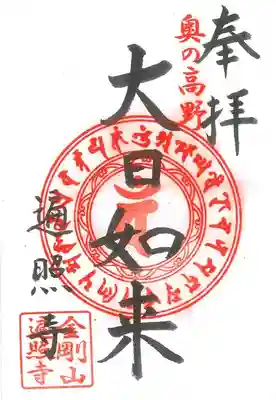 奉拝
奥の高野
大日如来
遍照寺
金剛山
遍照寺